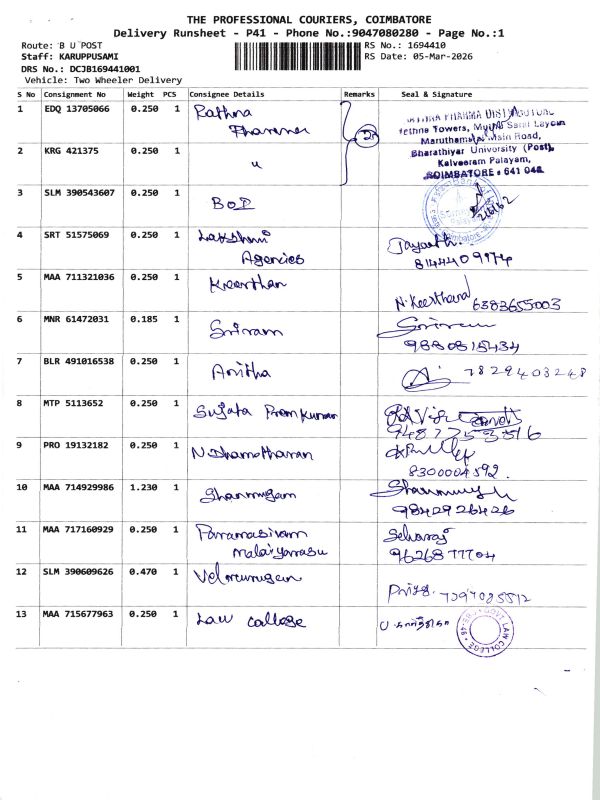 THE PROFESSIONAL COURIERS, COIMBATORE
Delivery Runsheet - P41 - Phone No.:9047080280 - Page No.:1
Route: B U POST
RS No.: 1694410
Staff: KARUPPUSAMI
RS Date: 05-Mar-2026
DRS No.: DCJB169441001
Vehicle: Two Wheeler Delivery
S No Consignment No Weight PCS Consignee Details Remarks Seal & Signature
1 EDQ 13705066 0.250 1 Rathna
Pharma
Towers,
Main Road,
Bharathiyar University (Post),
Kalveeram Palayam,
COIMBATORE - 641 046
2 KRG 421375 0.250 1 "
3 SLM 390543607 0.250 1 BOI
4 SRT 51575069 0.250 1 Lakshmi
Agencies
Jayanth.
8144409974
5 MAA 711321036 0.250 1 Keerthan
N. Keerthana 6383655003
6 MNR 61472031 0.185 1 Sriram
Sriram
9880815434
7 BLR 491016538 0.250 1 Anitha
7829403248
8 MTP 5113652 0.250 1 Sujata Prem Kumar
9487753516
9 PRO 19132182 0.250 1 N Dhamotharan
8300004592.
10 MAA 714929986 1.230 1 Shanmugam
9842926426
11 MAA 717160929 0.250 1 Paramasivam
Malaiyarasu
Selvaraj
9626877704
12 SLM 390609626 0.470 1 Velmurugan
Priya. 7397085512
13 MAA 715677963 0.250 1 Law College
GOVT LAW COLLEGE